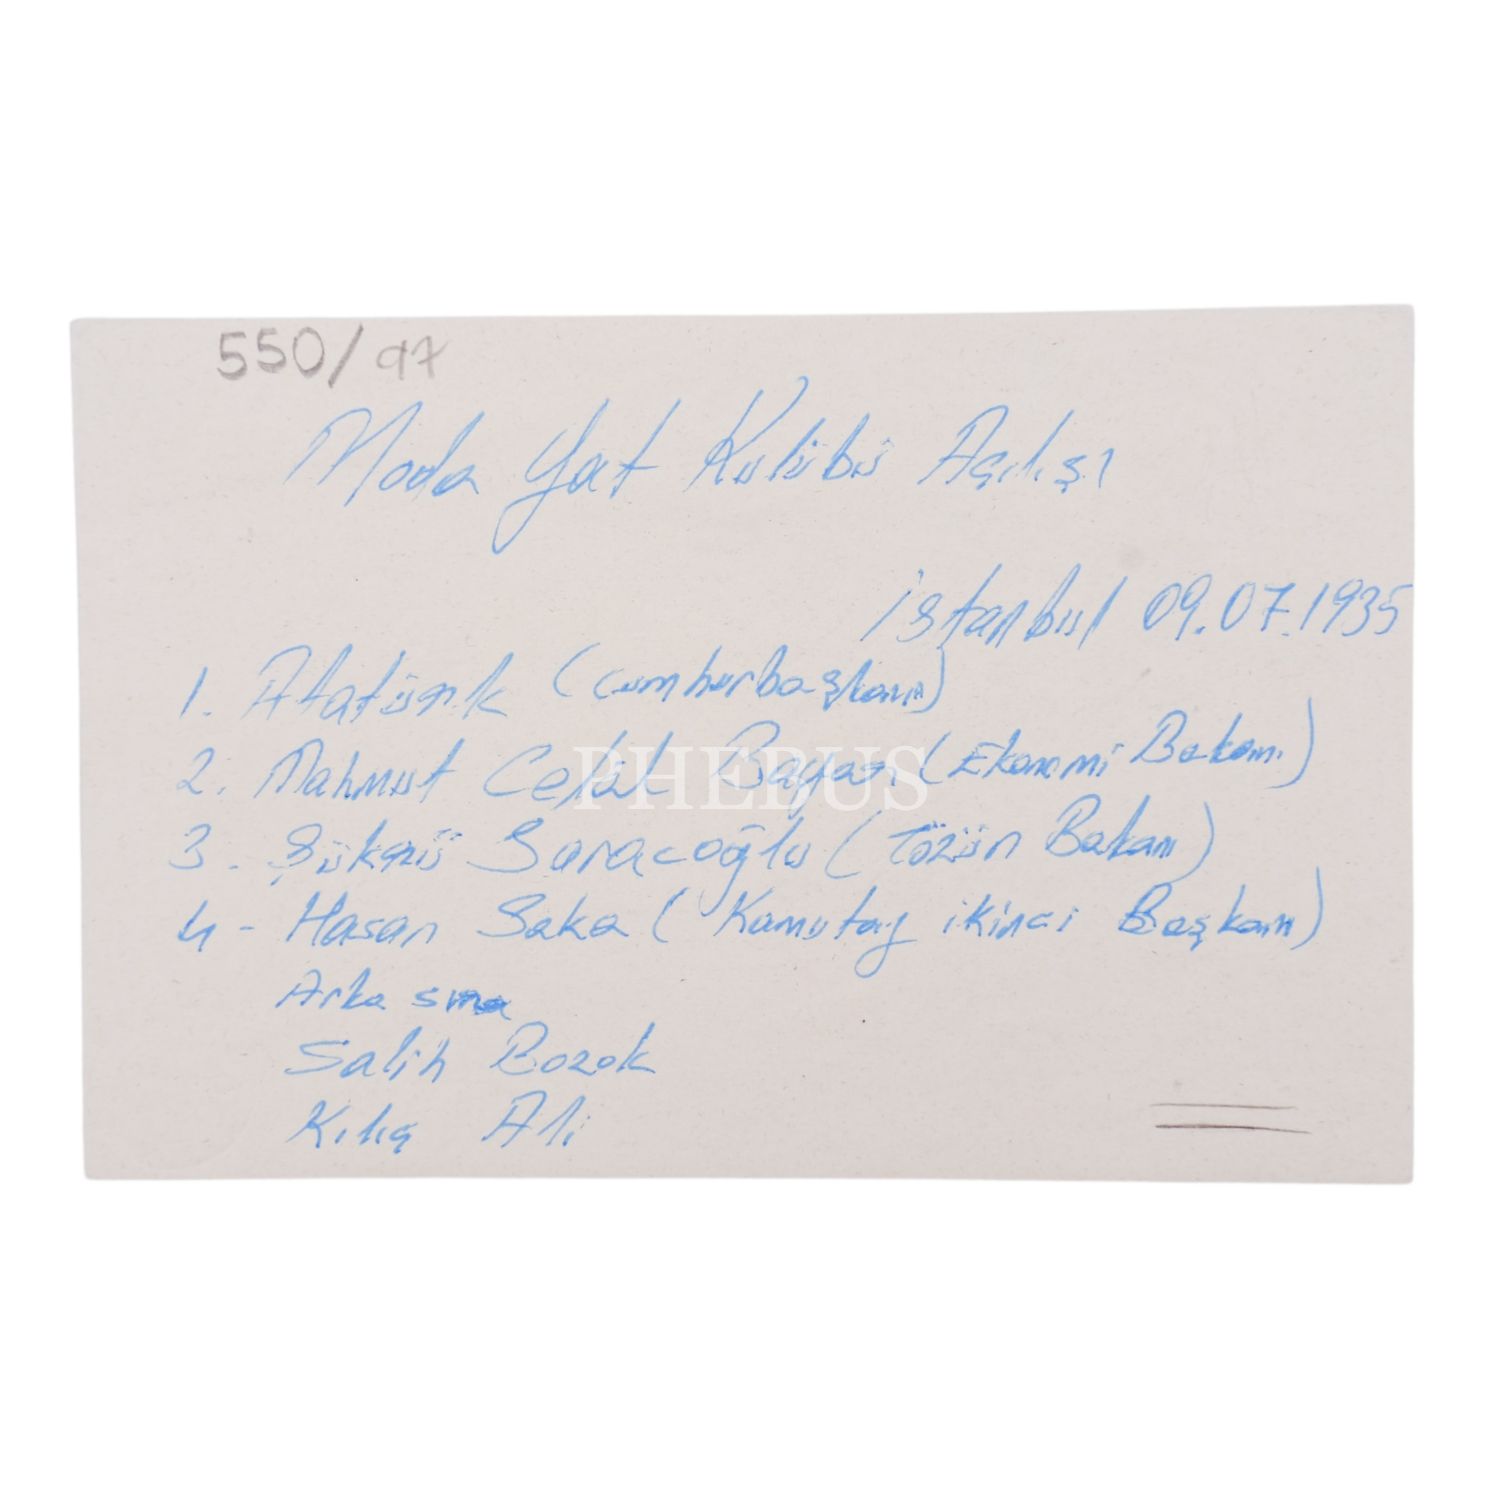 550/97
Moda Yat Kulübü Açılışı
İstanbul 09.07.1935
1. Atatürk (Cumhurbaşkanı)
2. Mahmut Celâl Bayar (Ekonomi Bakanı)
3. Şükrü Saracoğlu (Tözün Bakanı)
4- Hasan Saka (Kamutay ikinci Başkanı)
Arka sıra
Salih Bozok
Kılıç Ali
PHEBUS